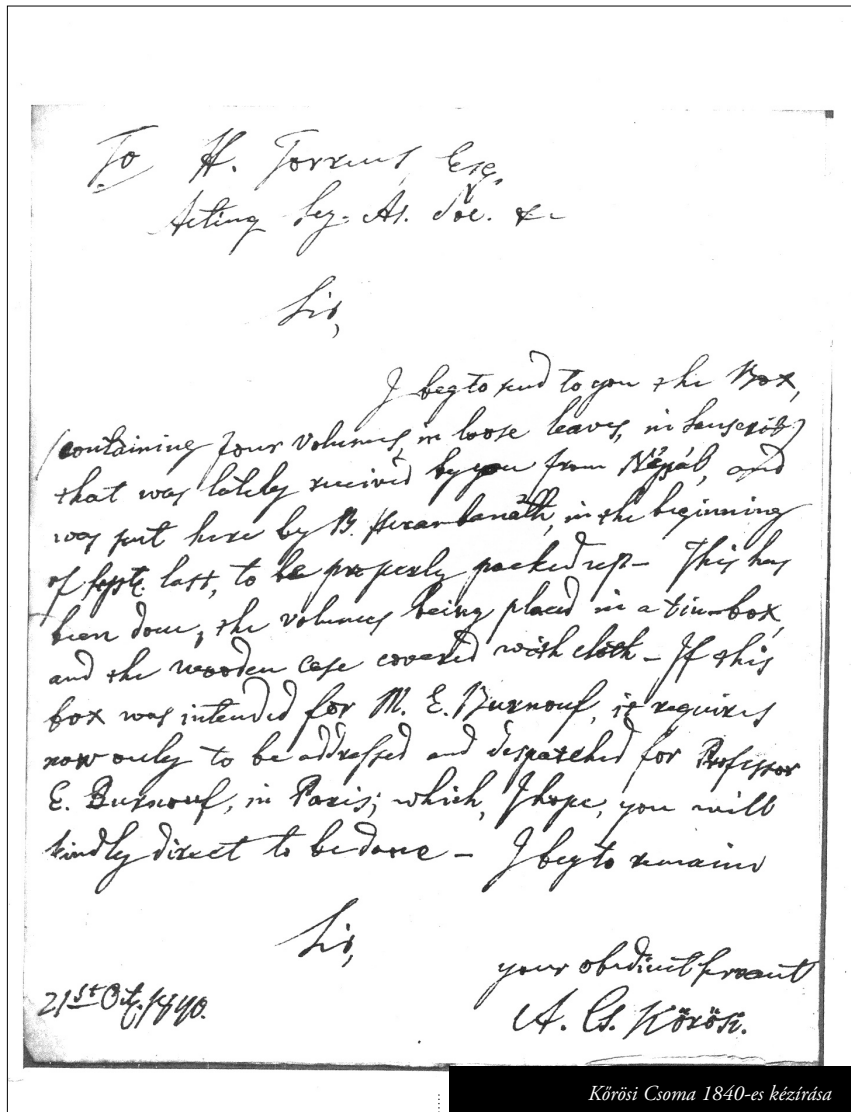 To H. Torrens, Esq.
Acting Sey. As. Soc. &c
Sir,
I beg to send to you the Box,
(containing four volumes, in loose leaves, in Sanscrit)
that was lately received by you from Népál, and
was sent here by B. Herambanáth, in the beginning
of Septr. last, to be properly packed up – This has
been done, the volumes being placed in a tin-box,
and the wooden case covered with cloth – If this
box was intended for M. E. Burnouf, it requires
now only to be addressed and despatched for Professor
E. Burnouf, in Paris; which, I hope, you will
kindly direct to be done – I beg to remain
Sir,
your obedient servant
21st Oct. 1840.
A. Cs. Kőrösi.
Kőrösi Csoma 1840-es kézírása